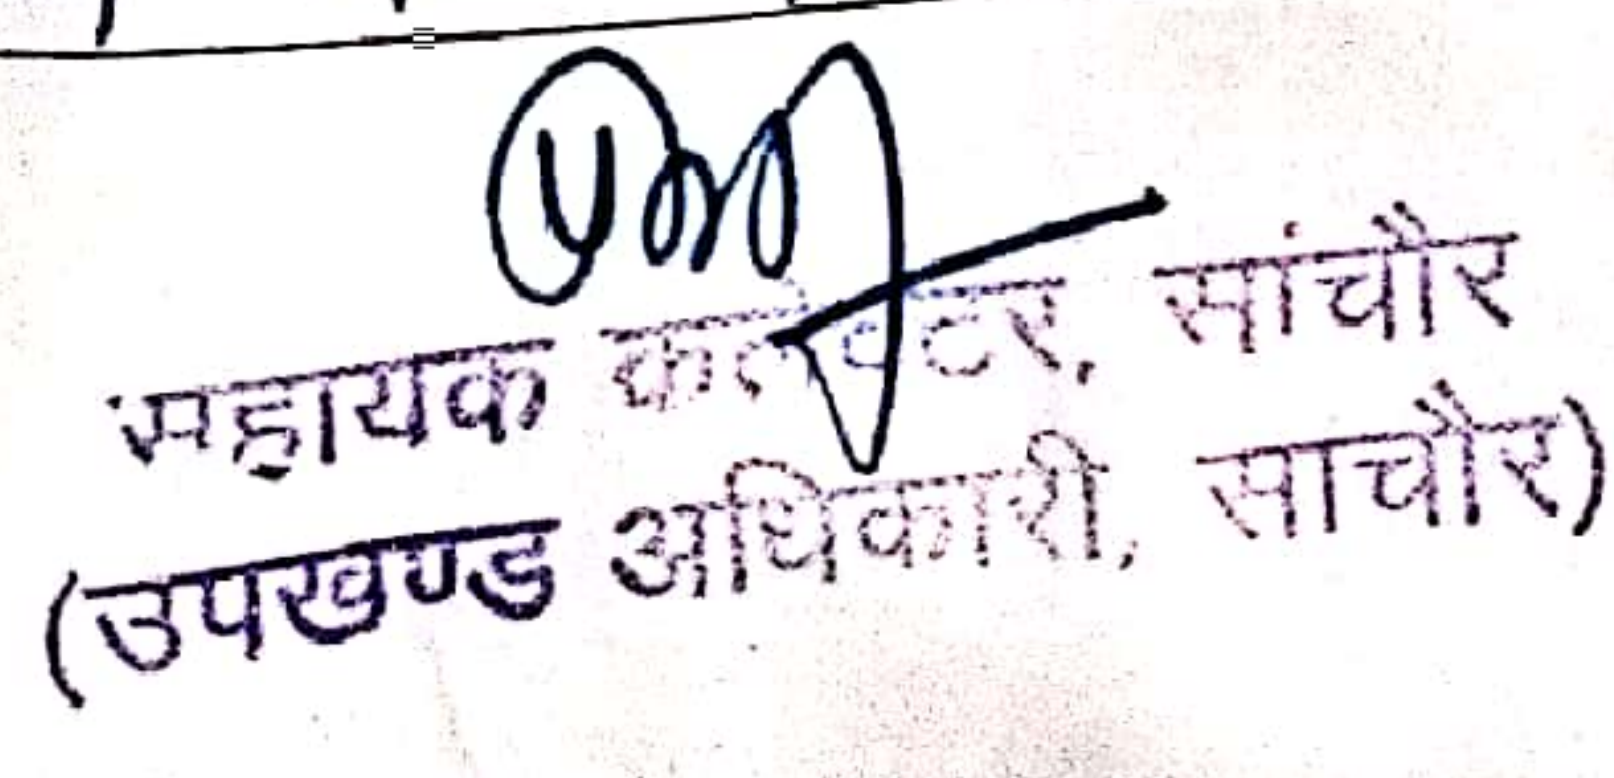 सहायक कलक्टर, सांचौर
(उपखण्ड अधिकारी, सांचौर)